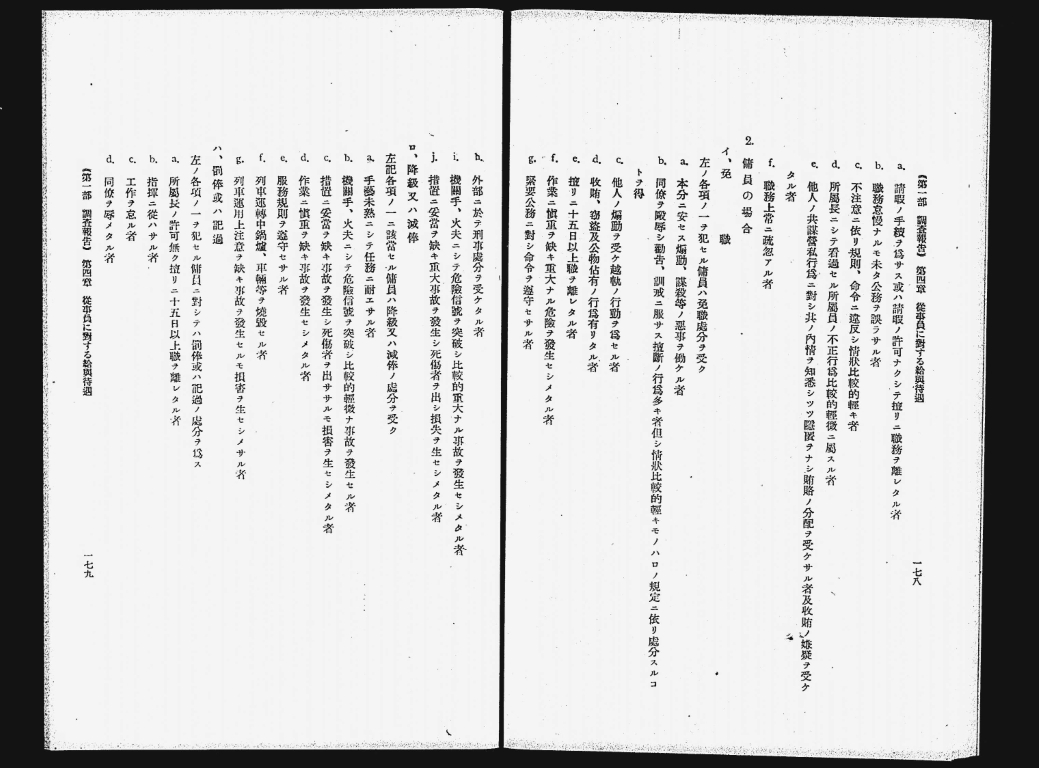 (第一部 調査報告) 第四章 從事員に對する給與待遇
一七八
a. 請暇ノ手續ヲ爲サス或ハ請暇ノ許可ナクシテ擅リニ職務ヲ離レタル者
b. 職務怠慢ナルモ未タ公務ヲ誤ラサル者
c. 不注意ニ依リ規則、命令ニ違反シ情狀比較的輕キ者
d. 所屬長ニシテ看過セル所屬員ノ不正行爲比較的輕微ニ屬スル者
e. 他人ノ共謀營私行爲ニ對シ共ノ內情ヲ知悉シツツ隱匿ヲナシ賄賂ノ分配ヲ受ケサル者及收賄ノ嫌疑ヲ受ケ
タル者
f. 職務上常ニ疏忽アル者
2. 傭員の場合
イ、免 職
左ノ各項ノ一ヲ犯セル傭員ハ免職處分ヲ受ク
a. 本分ニ安セス煽動、謀殺等ノ惡事ヲ働ケル者
b. 同僚ヲ毆辱シ勸吿、訓戒ニ服サス擅斷ノ行爲多キ者但シ情狀比較的輕キモノハロノ規定ニ依リ處分スルコ
トヲ得
c. 他人ノ煽動ヲ受ケ越軌ノ行動ヲ爲セル者
d. 收賄、竊盜及公物佔有ノ行爲有リタル者
e. 擅リニ十五日以上職ヲ離レタル者
f. 作業ニ愼重ヲ缺キ重大ナル危險ヲ發生セシメタル者
g. 緊要公務ニ對シ命令ヲ遵守セサル者
h. 外部ニ於テ刑事處分ヲ受ケタル者
i. 機關手、火夫ニシテ危險信號ヲ突破シ比較的重大ナル事故ヲ發生セシメタル者
j. 措置ニ妥當ヲ缺キ重大事故ヲ發生シ死傷者ヲ出シ損失ヲ生セシメタル者
ロ、降級又ハ減停
左記各項ノ一ニ該當セル傭員ハ降級又ハ減停ノ處分ヲ受ク
a. 手藝未熟ニシテ任務ニ耐エサル者
b. 機關手、火夫ニシテ危險信號ヲ突破シ比較的輕微ナ事故ヲ發生セル者
c. 措置ニ妥當ヲ缺キ事故ヲ發生シ死傷者ヲ出ササルモ損害ヲ生セシメタル者
d. 作業ニ愼重ヲ缺キ事故ヲ發生セシメタル者
e. 服務規則ヲ遵守セサル者
f. 列車運轉中鍋爐、車輛等ヲ燒毀セル者
g. 列車運用上注意ヲ缺キ事故ヲ發生セルモ損害ヲ生セシメサル者
ハ、罰俸或ハ記過
左ノ各項ノ一ヲ犯セル傭員ニ對シテハ罰俸或ハ記過ノ處分ヲ爲ス
a. 所屬長ノ許可無ク擅リニ十五日以上職ヲ離レタル者
b. 指揮ニ從ハサル者
c. 工作ヲ怠ル者
d. 同僚ヲ辱シメタル者
(第一部 調査報告) 第四章 從事員に對する給與待遇
一七九